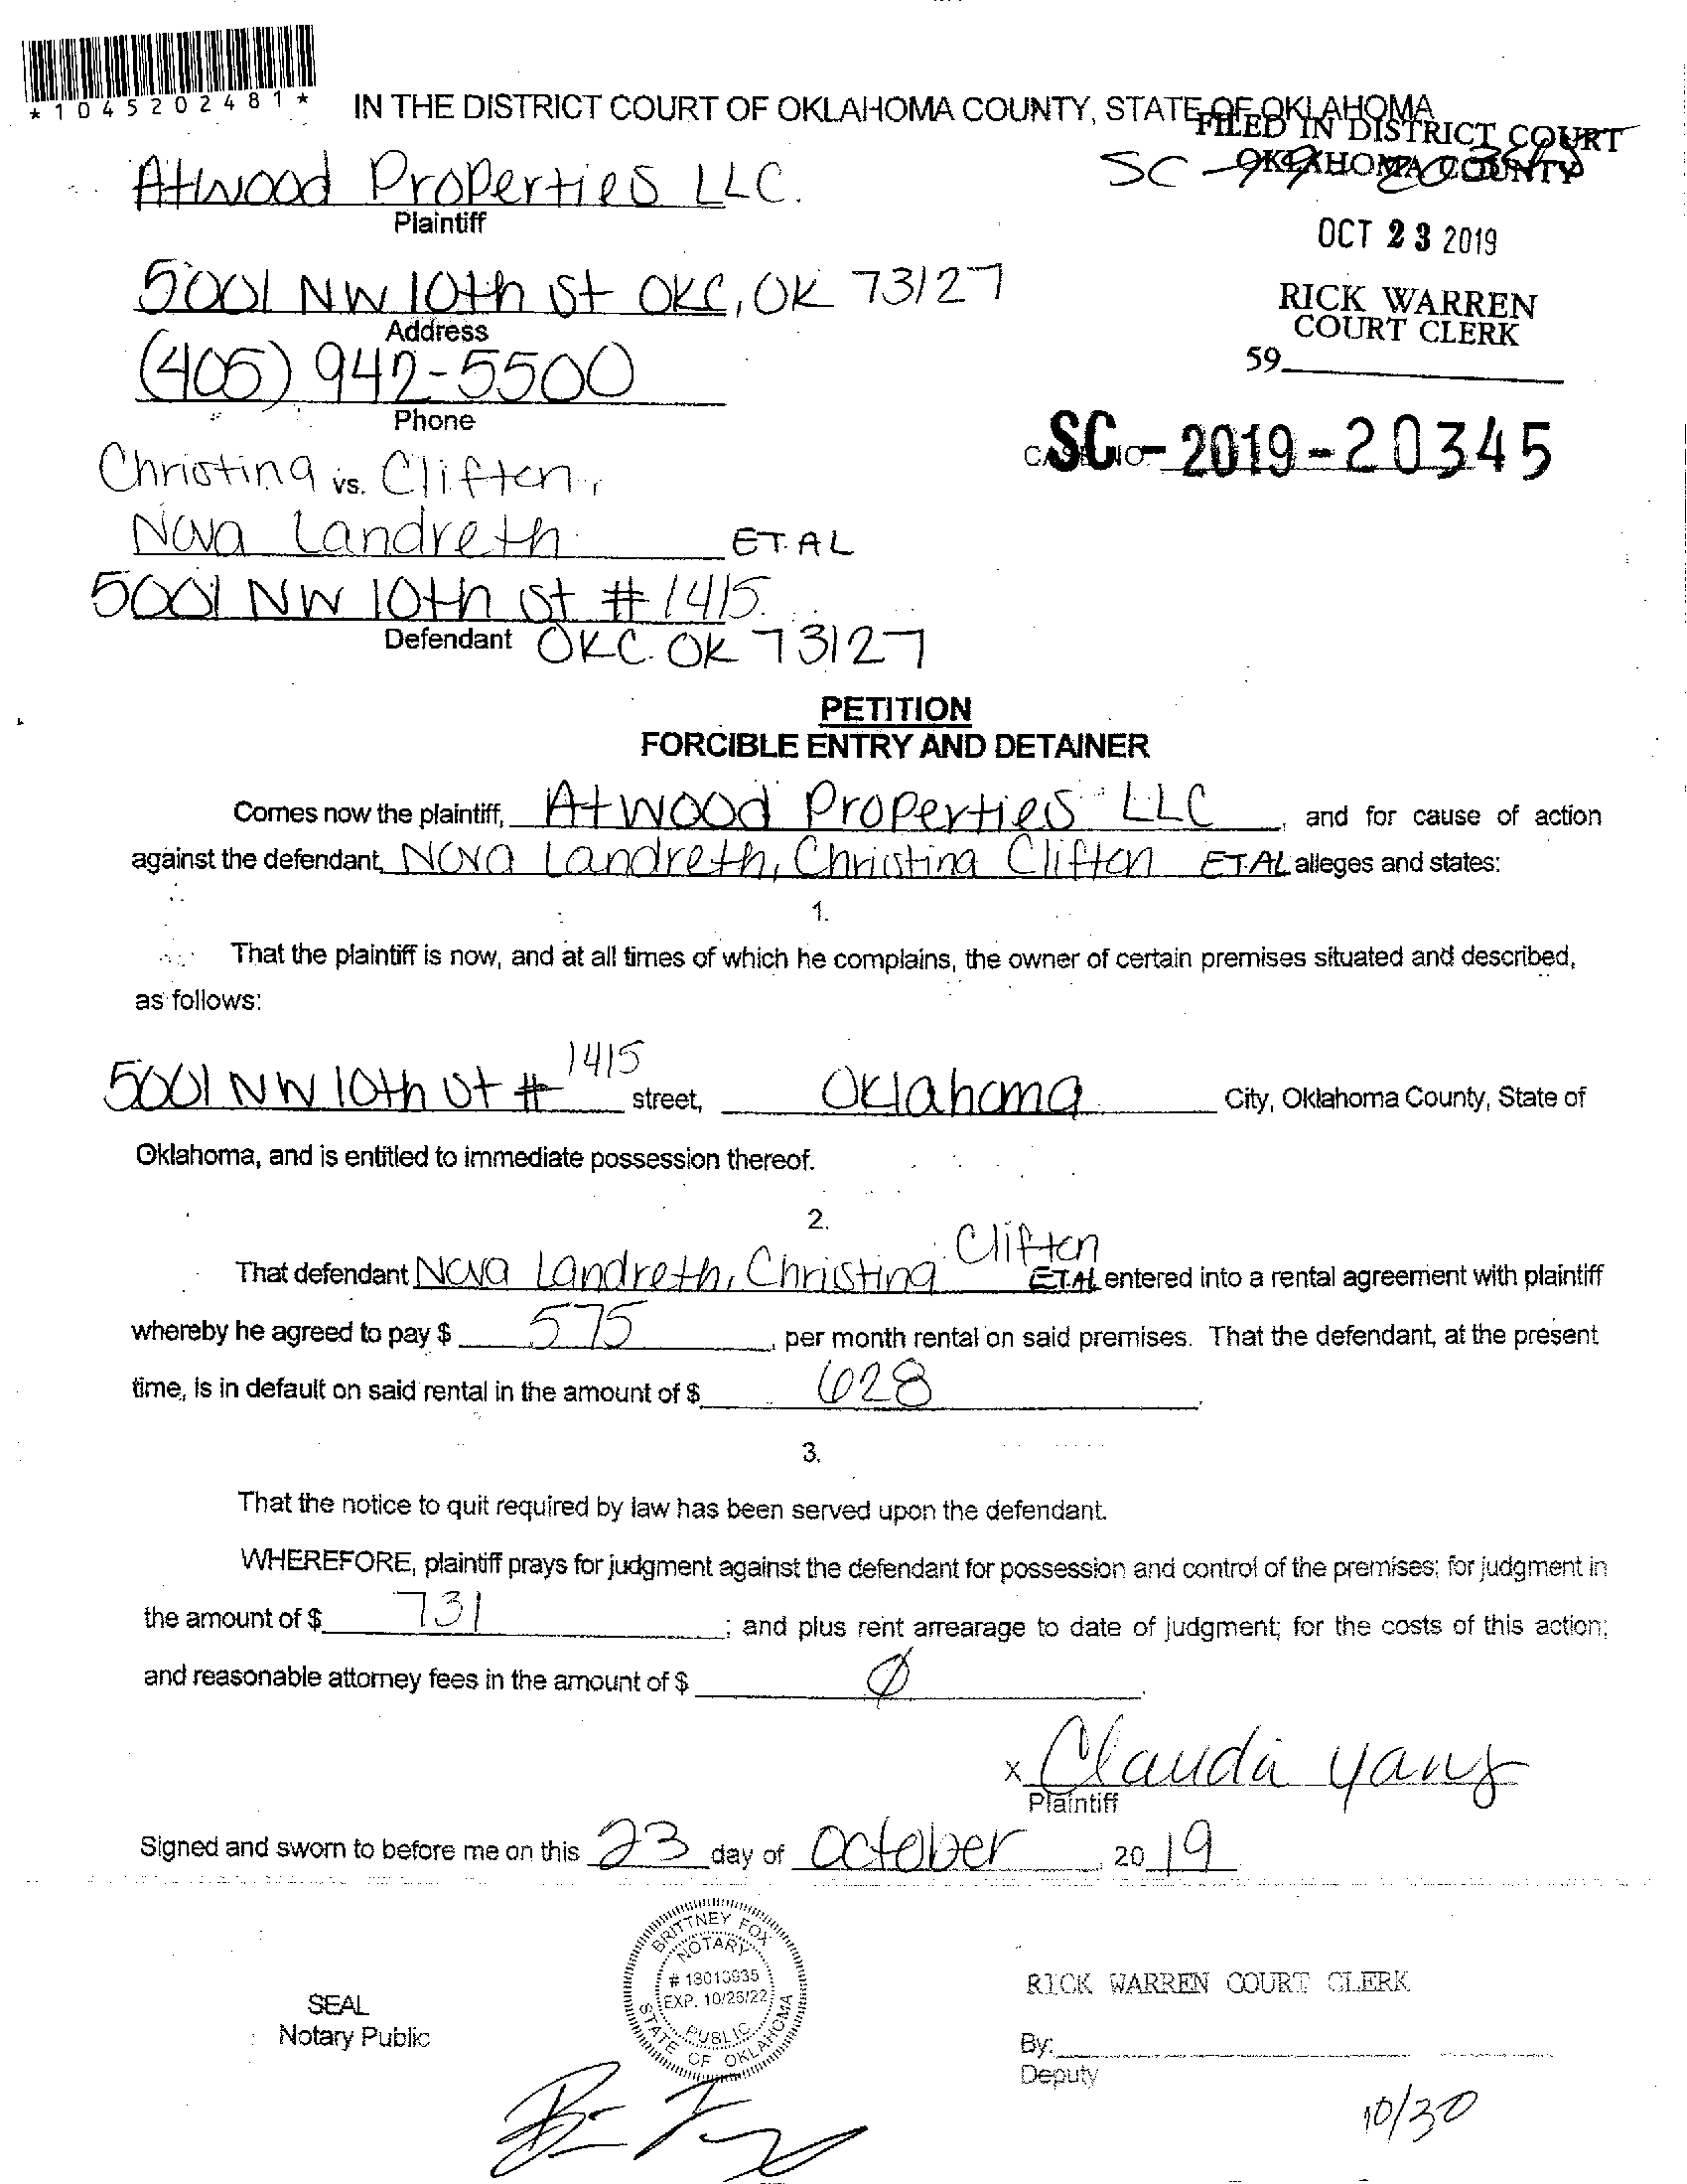 *1045202481*
IN THE DISTRICT COURT OF OKLAHOMA COUNTY, STATE OF OKLAHOMA
FILED IN DISTRICT COURT
OKLAHOMA COUNTY
SC-
Atwood Properties LLC.
Plaintiff
OCT 23 2019
5001 NW 10th St OKC, OK 73127
Address
RICK WARREN
COURT CLERK
59
(405) 942-5500
Phone
SC-2019-20345
CASE NO.
Christina vs. Clifton,
Nova Landreth ET.AL
5001 NW 10th St #1415.
Defendant OKC. OK 73127
PETITION
FORCIBLE ENTRY AND DETAINER
Comes now the plaintiff, Atwood Properties LLC, and for cause of action
against the defendant, Nova Landreth, Christina Clifton ET.AL alleges and states:
1.
That the plaintiff is now, and at all times of which he complains, the owner of certain premises situated and described,
as follows:
5001 NW 10th St # 1415 street, Oklahoma City, Oklahoma County, State of
Oklahoma, and is entitled to immediate possession thereof.
2.
That defendant Nova Landreth, Christina Clifton ET.AL entered into a rental agreement with plaintiff
whereby he agreed to pay $ 575, per month rental on said premises. That the defendant, at the present
time, is in default on said rental in the amount of $ 628.
3.
That the notice to quit required by law has been served upon the defendant.
WHEREFORE, plaintiff prays for judgment against the defendant for possession and control of the premises; for judgment in
the amount of $ 731; and plus rent arrearage to date of judgment; for the costs of this action;
and reasonable attorney fees in the amount of $ Ø.
x Claudia Yang
Plaintiff
Signed and sworn to before me on this 23 day of October, 2019
BRITTNEY FOX
NOTARY
EXP. 10/26/22
PUBLIC
STATE OF OKLAHOMA
SEAL
Notary Public
RICK WARREN COURT CLERK
By:
Deputy
10/30